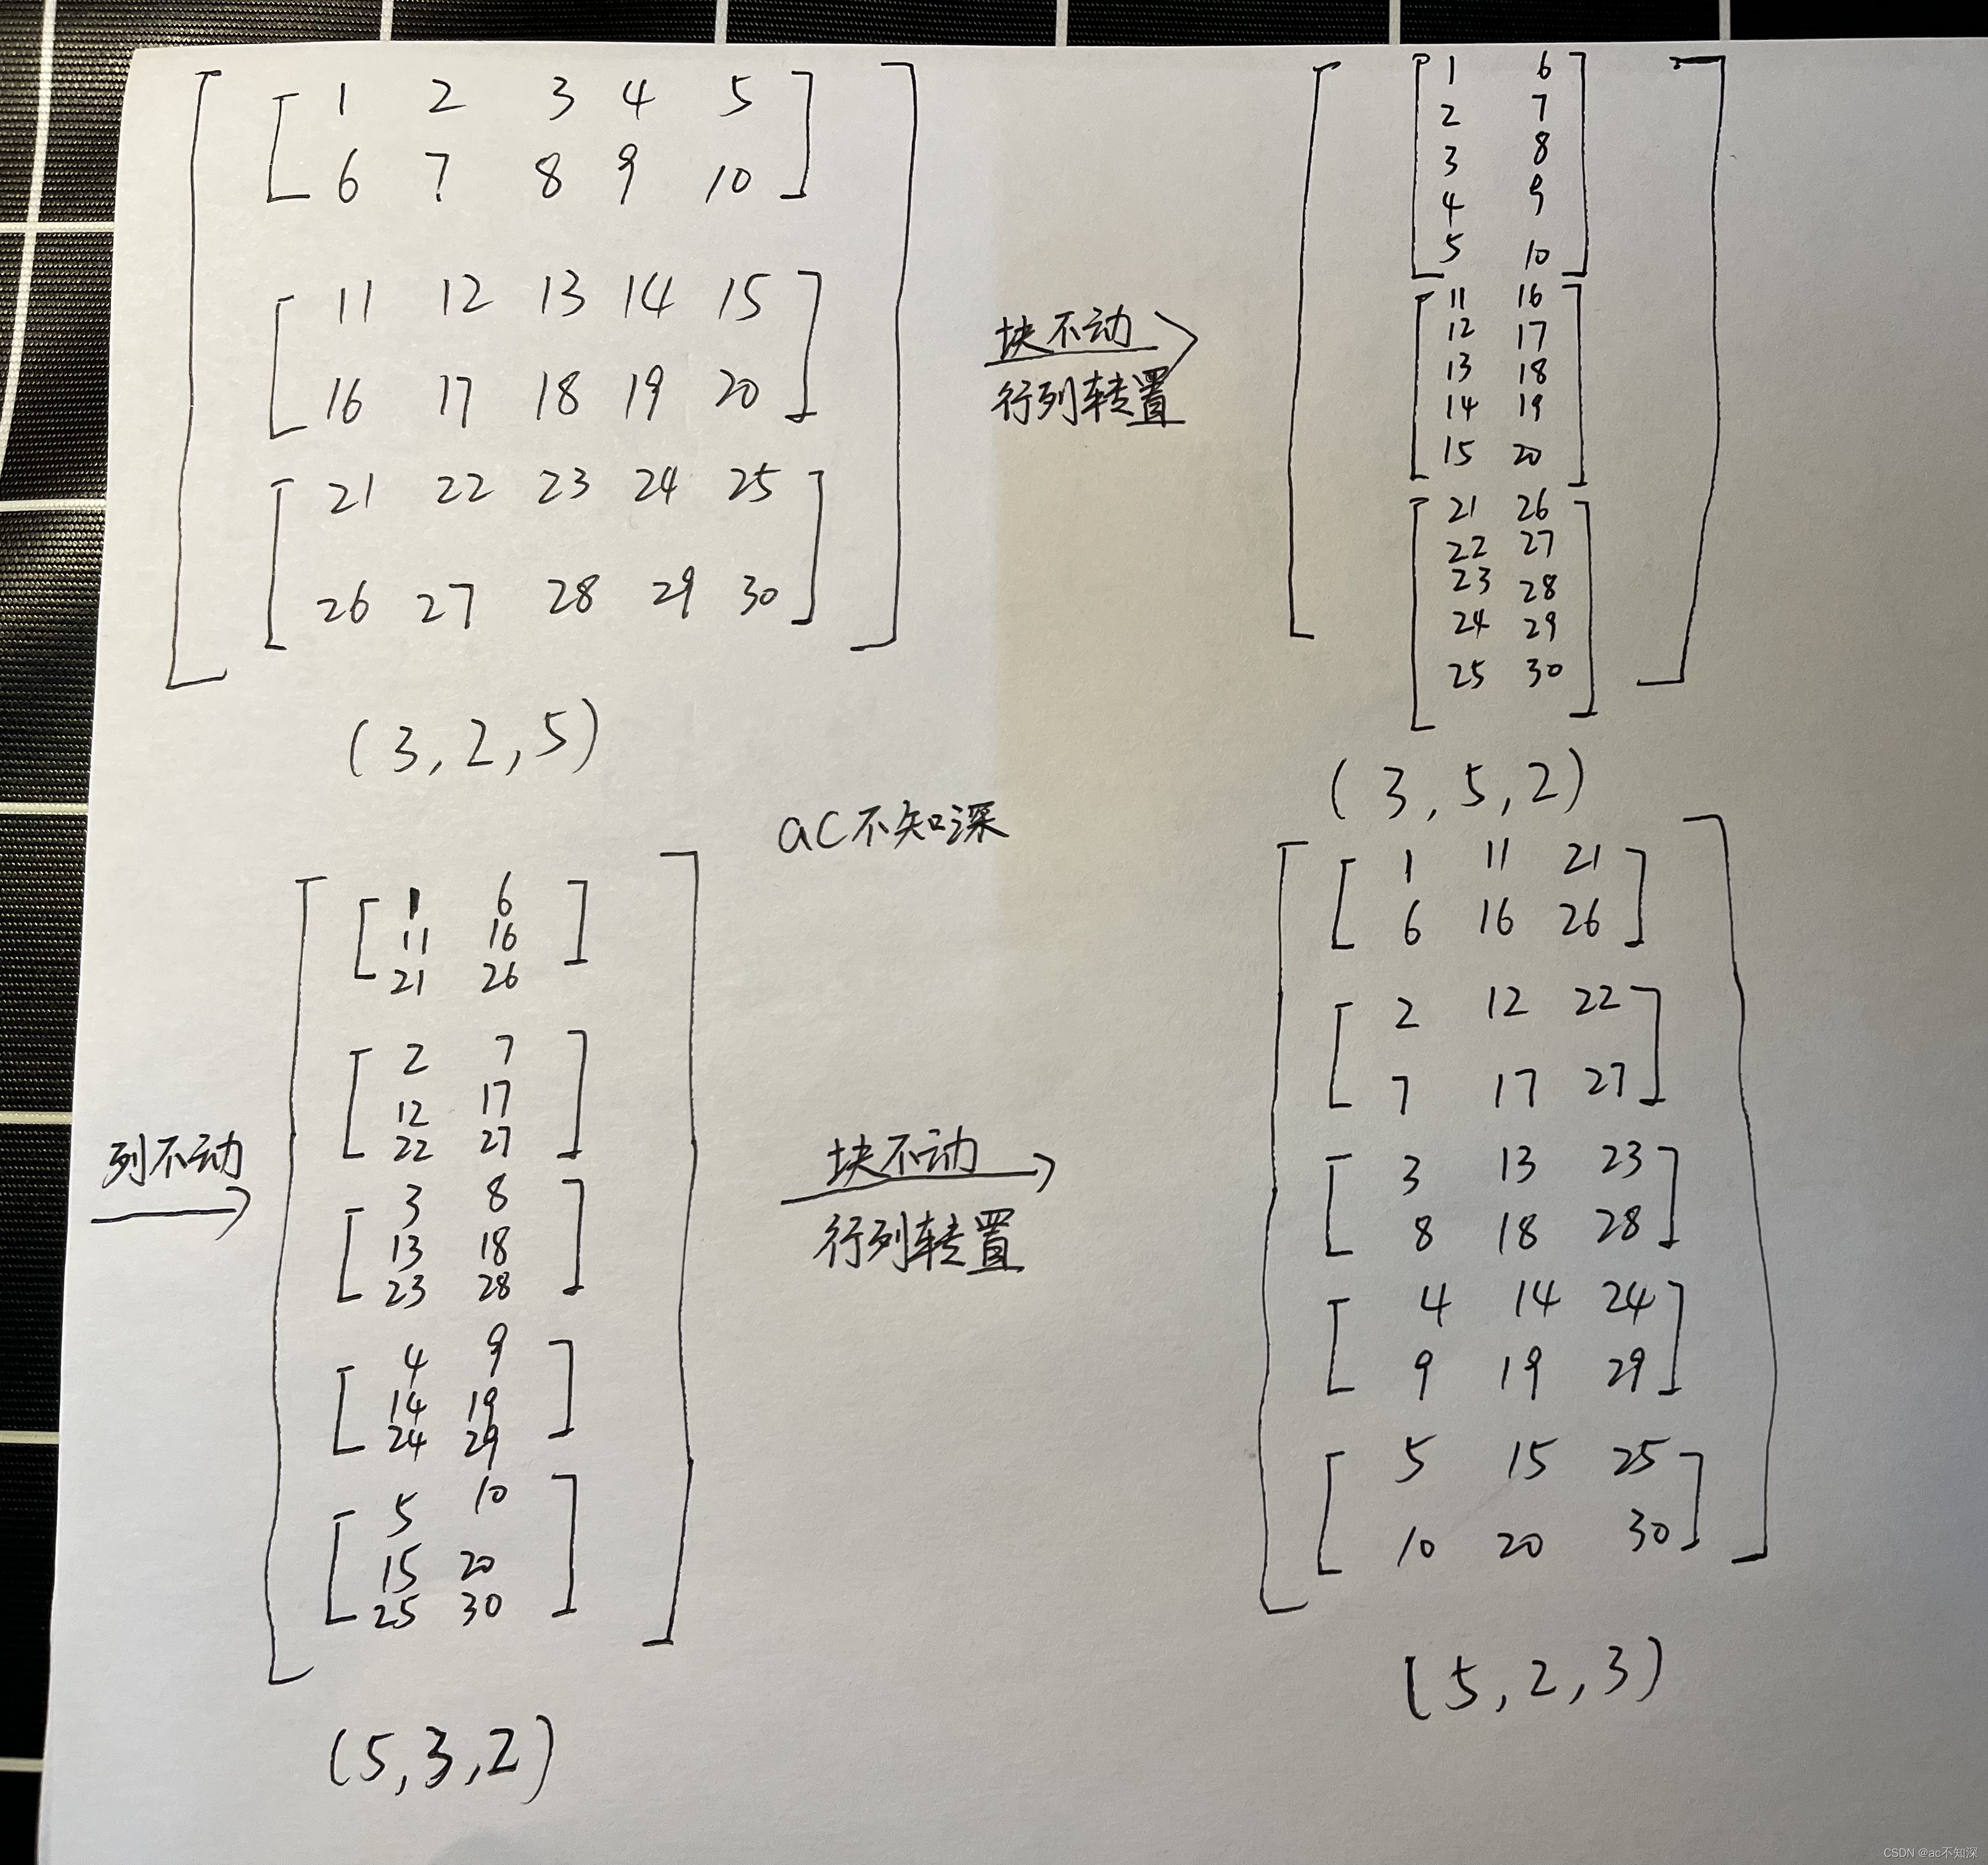 1 2 3 4 5
6 7 8 9 10
11 12 13 14 15
16 17 18 19 20
21 22 23 24 25
26 27 28 29 30
(3,2,5)
块不动
行列转置
1 6
2 7
3 8
4 9
5 10
11 16
12 17
13 18
14 19
15 20
21 26
22 27
23 28
24 29
25 30
(3,5,2)
ac不知深
列不动
1 6
11 16
21 26
2 7
12 17
22 27
3 8
13 18
23 28
4 9
14 19
24 29
5 10
15 20
25 30
(5,3,2)
块不动
行列转置
1 11 21
6 16 26
2 12 22
7 17 27
3 13 23
8 18 28
4 14 24
9 19 29
5 15 25
10 20 30
(5,2,3)
CSDN @ac不知深